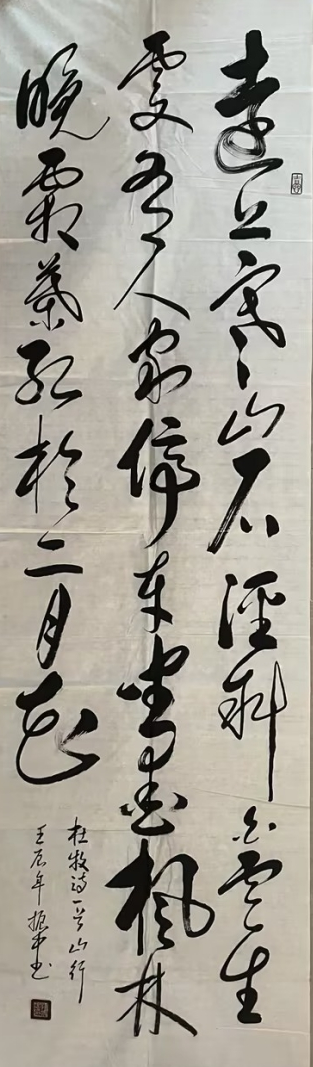 遠上寒山石徑斜白雲生
處有人家停車坐愛楓林
晚霜葉紅於二月花
杜牧诗一首山行
壬辰年振书